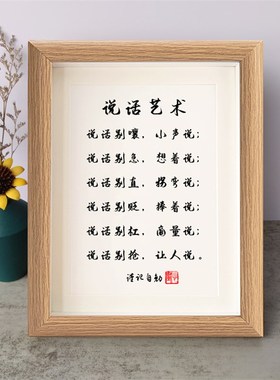 说话艺术
说话别嚷，小声说；
说话别急，想着说；
说话别直，拐弯说；
说话别贬，捧着说；
说话别杠，商量说；
说话别抢，让人说。
谨记自勉